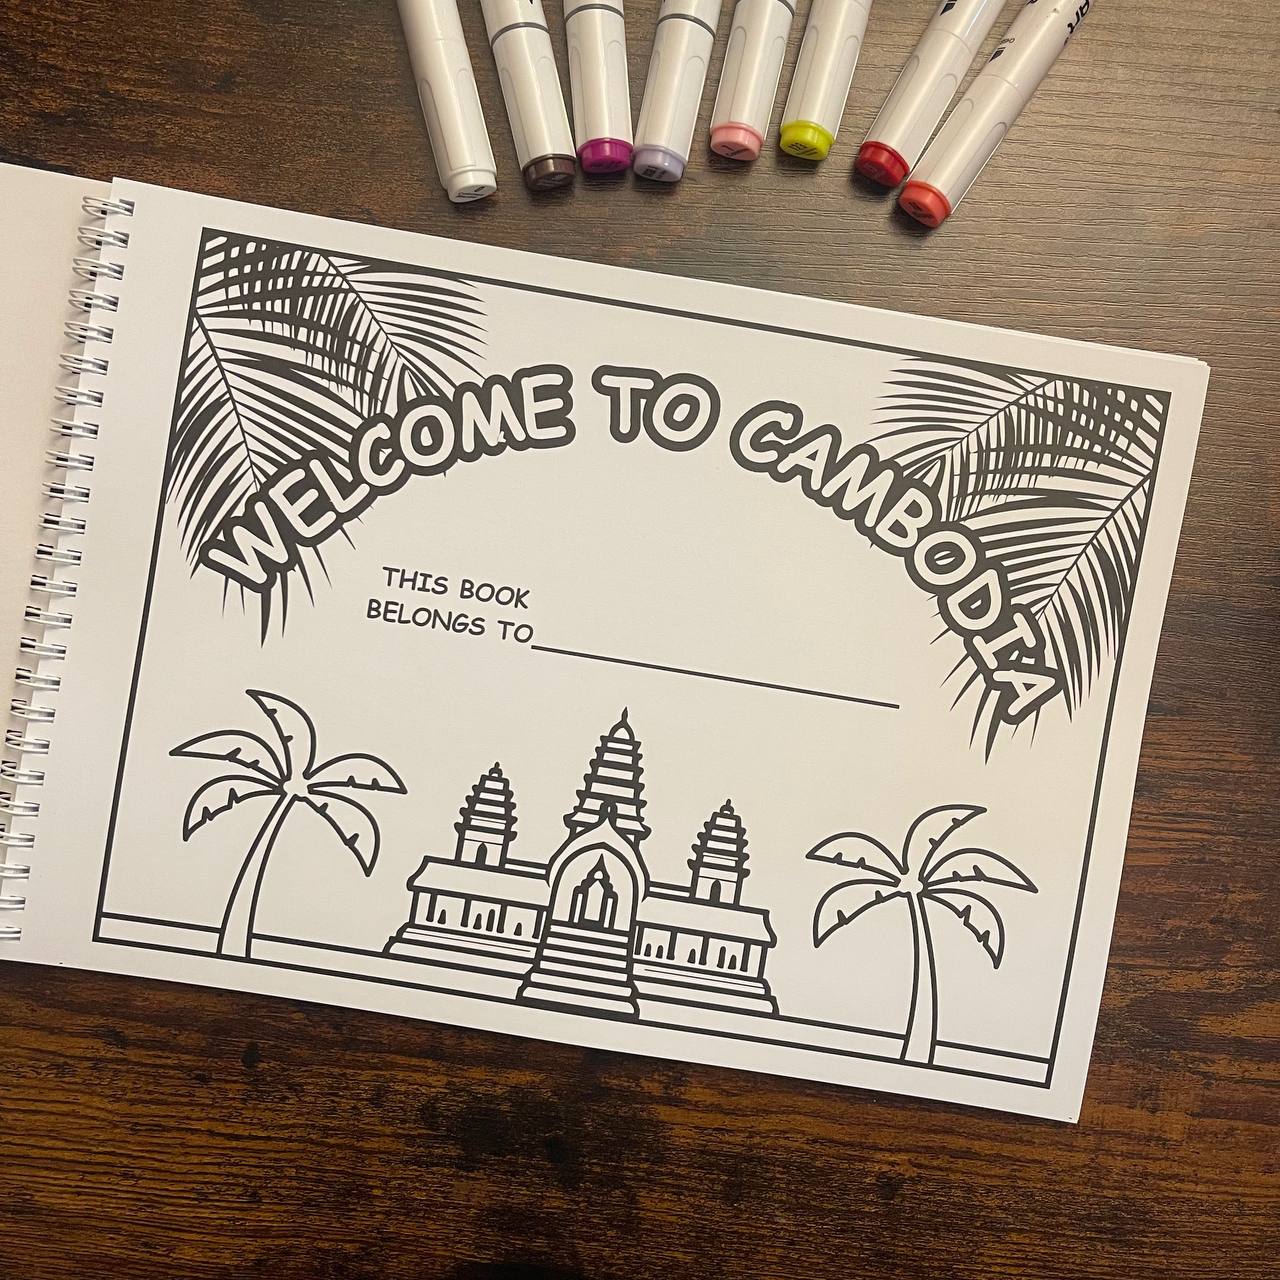 WELCOME TO CAMBODIA
THIS BOOK
BELONGS TO